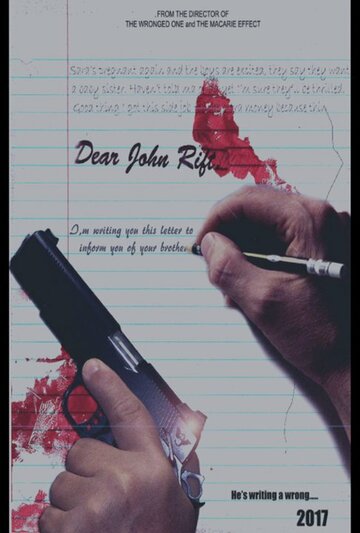 .FROM THE DIRECTOR OF
THE WRONGED ONE and THE MACARIE EFFECT
Sara's pregnant again and the boys are excited, they say they want
a baby sister. Haven't told ma yet I'm sure they'll be thrilled.
Good thing I got this side job money because
Dear John Rift
I,m writing you this letter to
inform you of your brother
He's writing a wrong....
2017